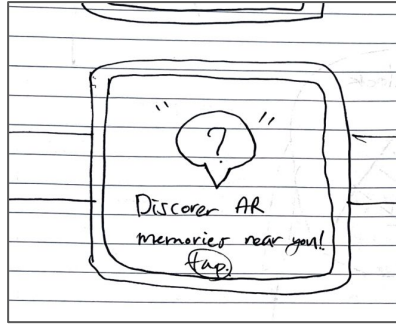 ?
Discover AR
memories near you!
tap.